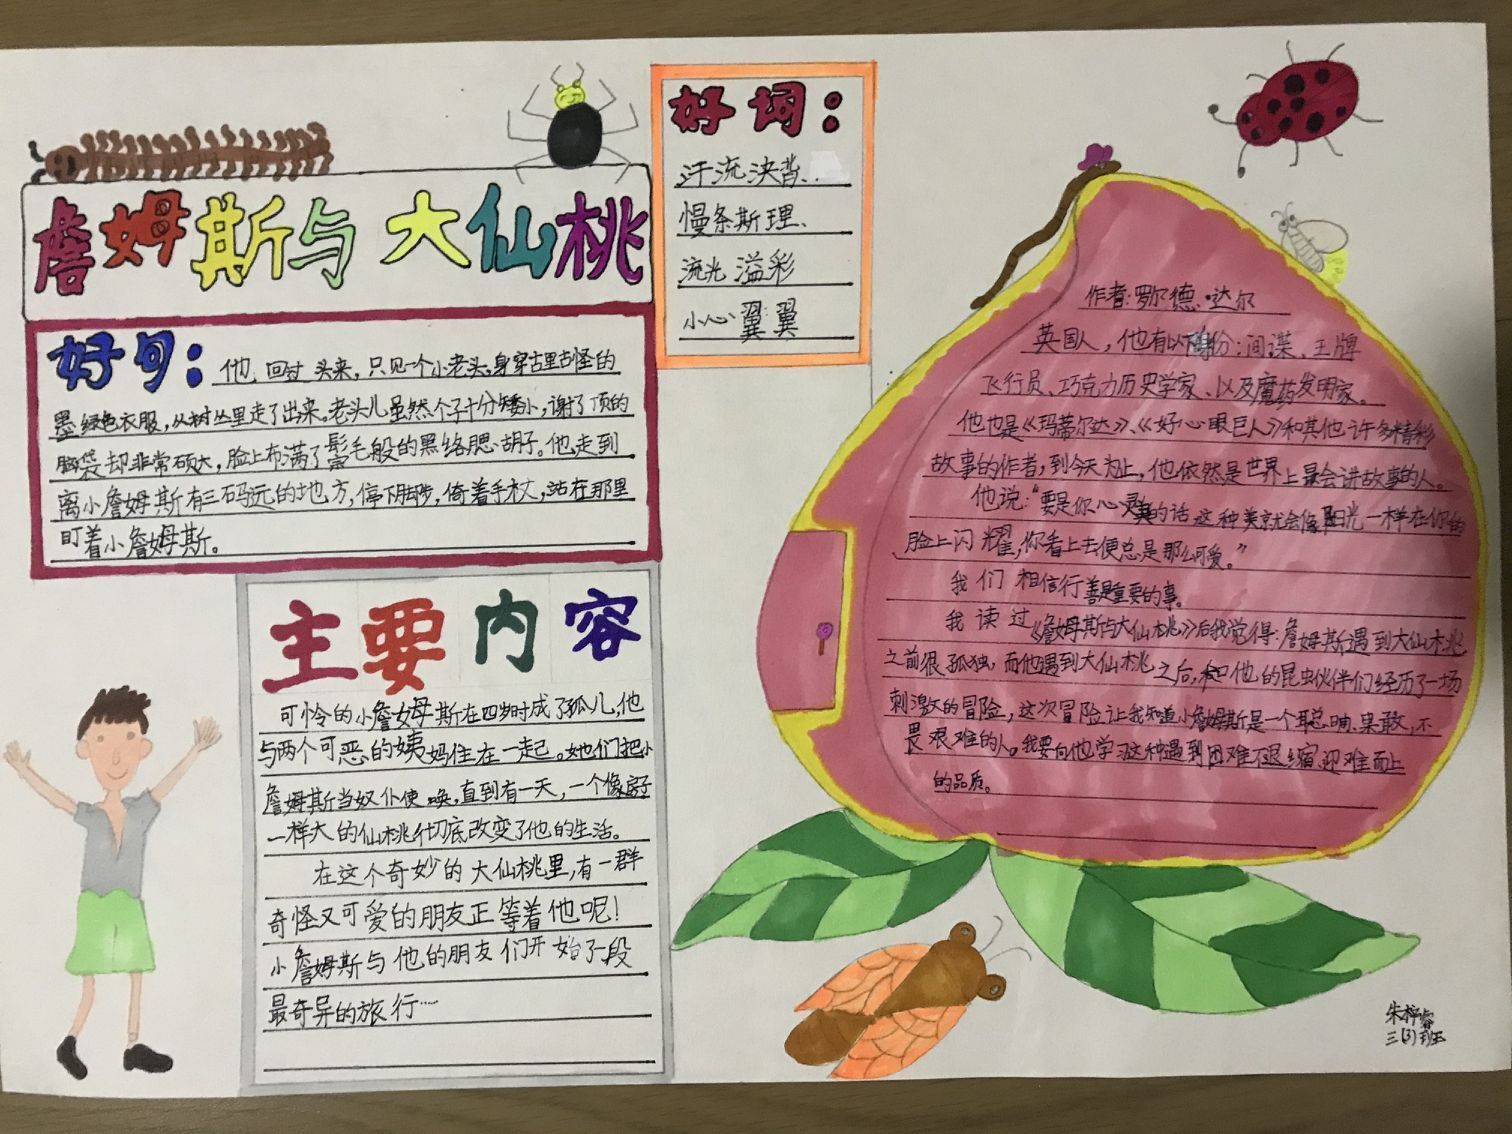 詹姆斯与大仙桃
好句：他回过头来，只见一个小老头，身穿古里古怪的
墨绿色衣服，从树丛里走了出来。老头儿虽然个子十分矮小，谢了顶的
脑袋却非常硕大，脸上布满了鬃毛般的黑络腮胡子。他走到
离小詹姆斯有三码远的地方，停下脚步，倚着手杖，站在那里
盯着小詹姆斯。
好词：
汗流浃背、
慢条斯理、
流光溢彩
小心翼翼
主要内容
可怜的小詹姆斯在四岁时成了孤儿，他
与两个可恶的姨妈住在一起。她们把小
詹姆斯当奴仆使唤，直到有一天，一个像房子
一样大的仙桃彻底改变了他的生活。
在这个奇妙的大仙桃里，有一群
奇怪又可爱的朋友正等着他呢！
小詹姆斯与他的朋友们开始了一段
最奇异的旅行……
作者：罗尔德·达尔
英国人，他有以下身份：间谍、王牌
飞行员、巧克力历史学家、以及魔药发明家。
他也是《玛蒂尔达》、《好心眼巨人》和其他许多精彩
故事的作者，到今天为止，他依然是世界上最会讲故事的人。
他说：“要是你心灵美的话，这种美就会像阳光一样在你的
脸上闪耀，你看上去便总是那么可爱。”
我们相信行善是重要的事。
我读过《詹姆斯与大仙桃》后我觉得：詹姆斯遇到大仙桃
之前很孤独，而他遇到大仙桃之后，和他的昆虫伙伴们经历了一场
刺激的冒险，这次冒险让我知道小詹姆斯是一个聪明、果敢，不
畏艰难的人。我要向他学习这种遇到困难不退缩，迎难而上
的品质。
朱梓睿
三(3)班